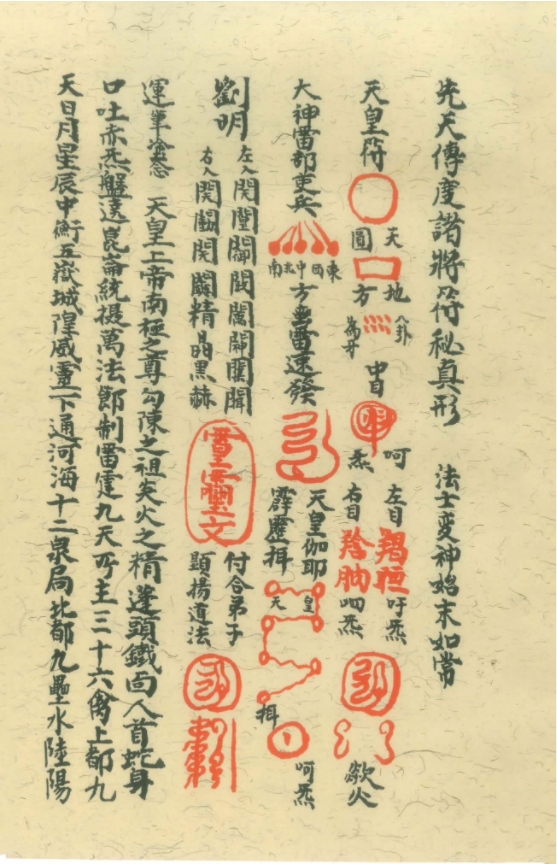 先天傳度諸將符秘真形　法士變神始末如常
天皇符　天圓　地方　八卦　中目　呵炁　左目　吁炁　右目　呬炁　欻火
大神雷部吏兵　東西中北南方五雷速發　天皇伽耶霹靂揖　天皇　揖　呵炁
劉明　左入　右入　精晶黑赫　靈文　付合弟子顕揚道法
運筆念　天皇上帝南極之尊勾陳之祖炎火之精蓬頭鐵面人首蛇身
口吐赤炁盤遶崑崙統攝萬法節制雷霆九天主三十六禽上都九
天日月星辰中衡五嶽城隍威靈下通河海十二泉局北都九壘水陸陽